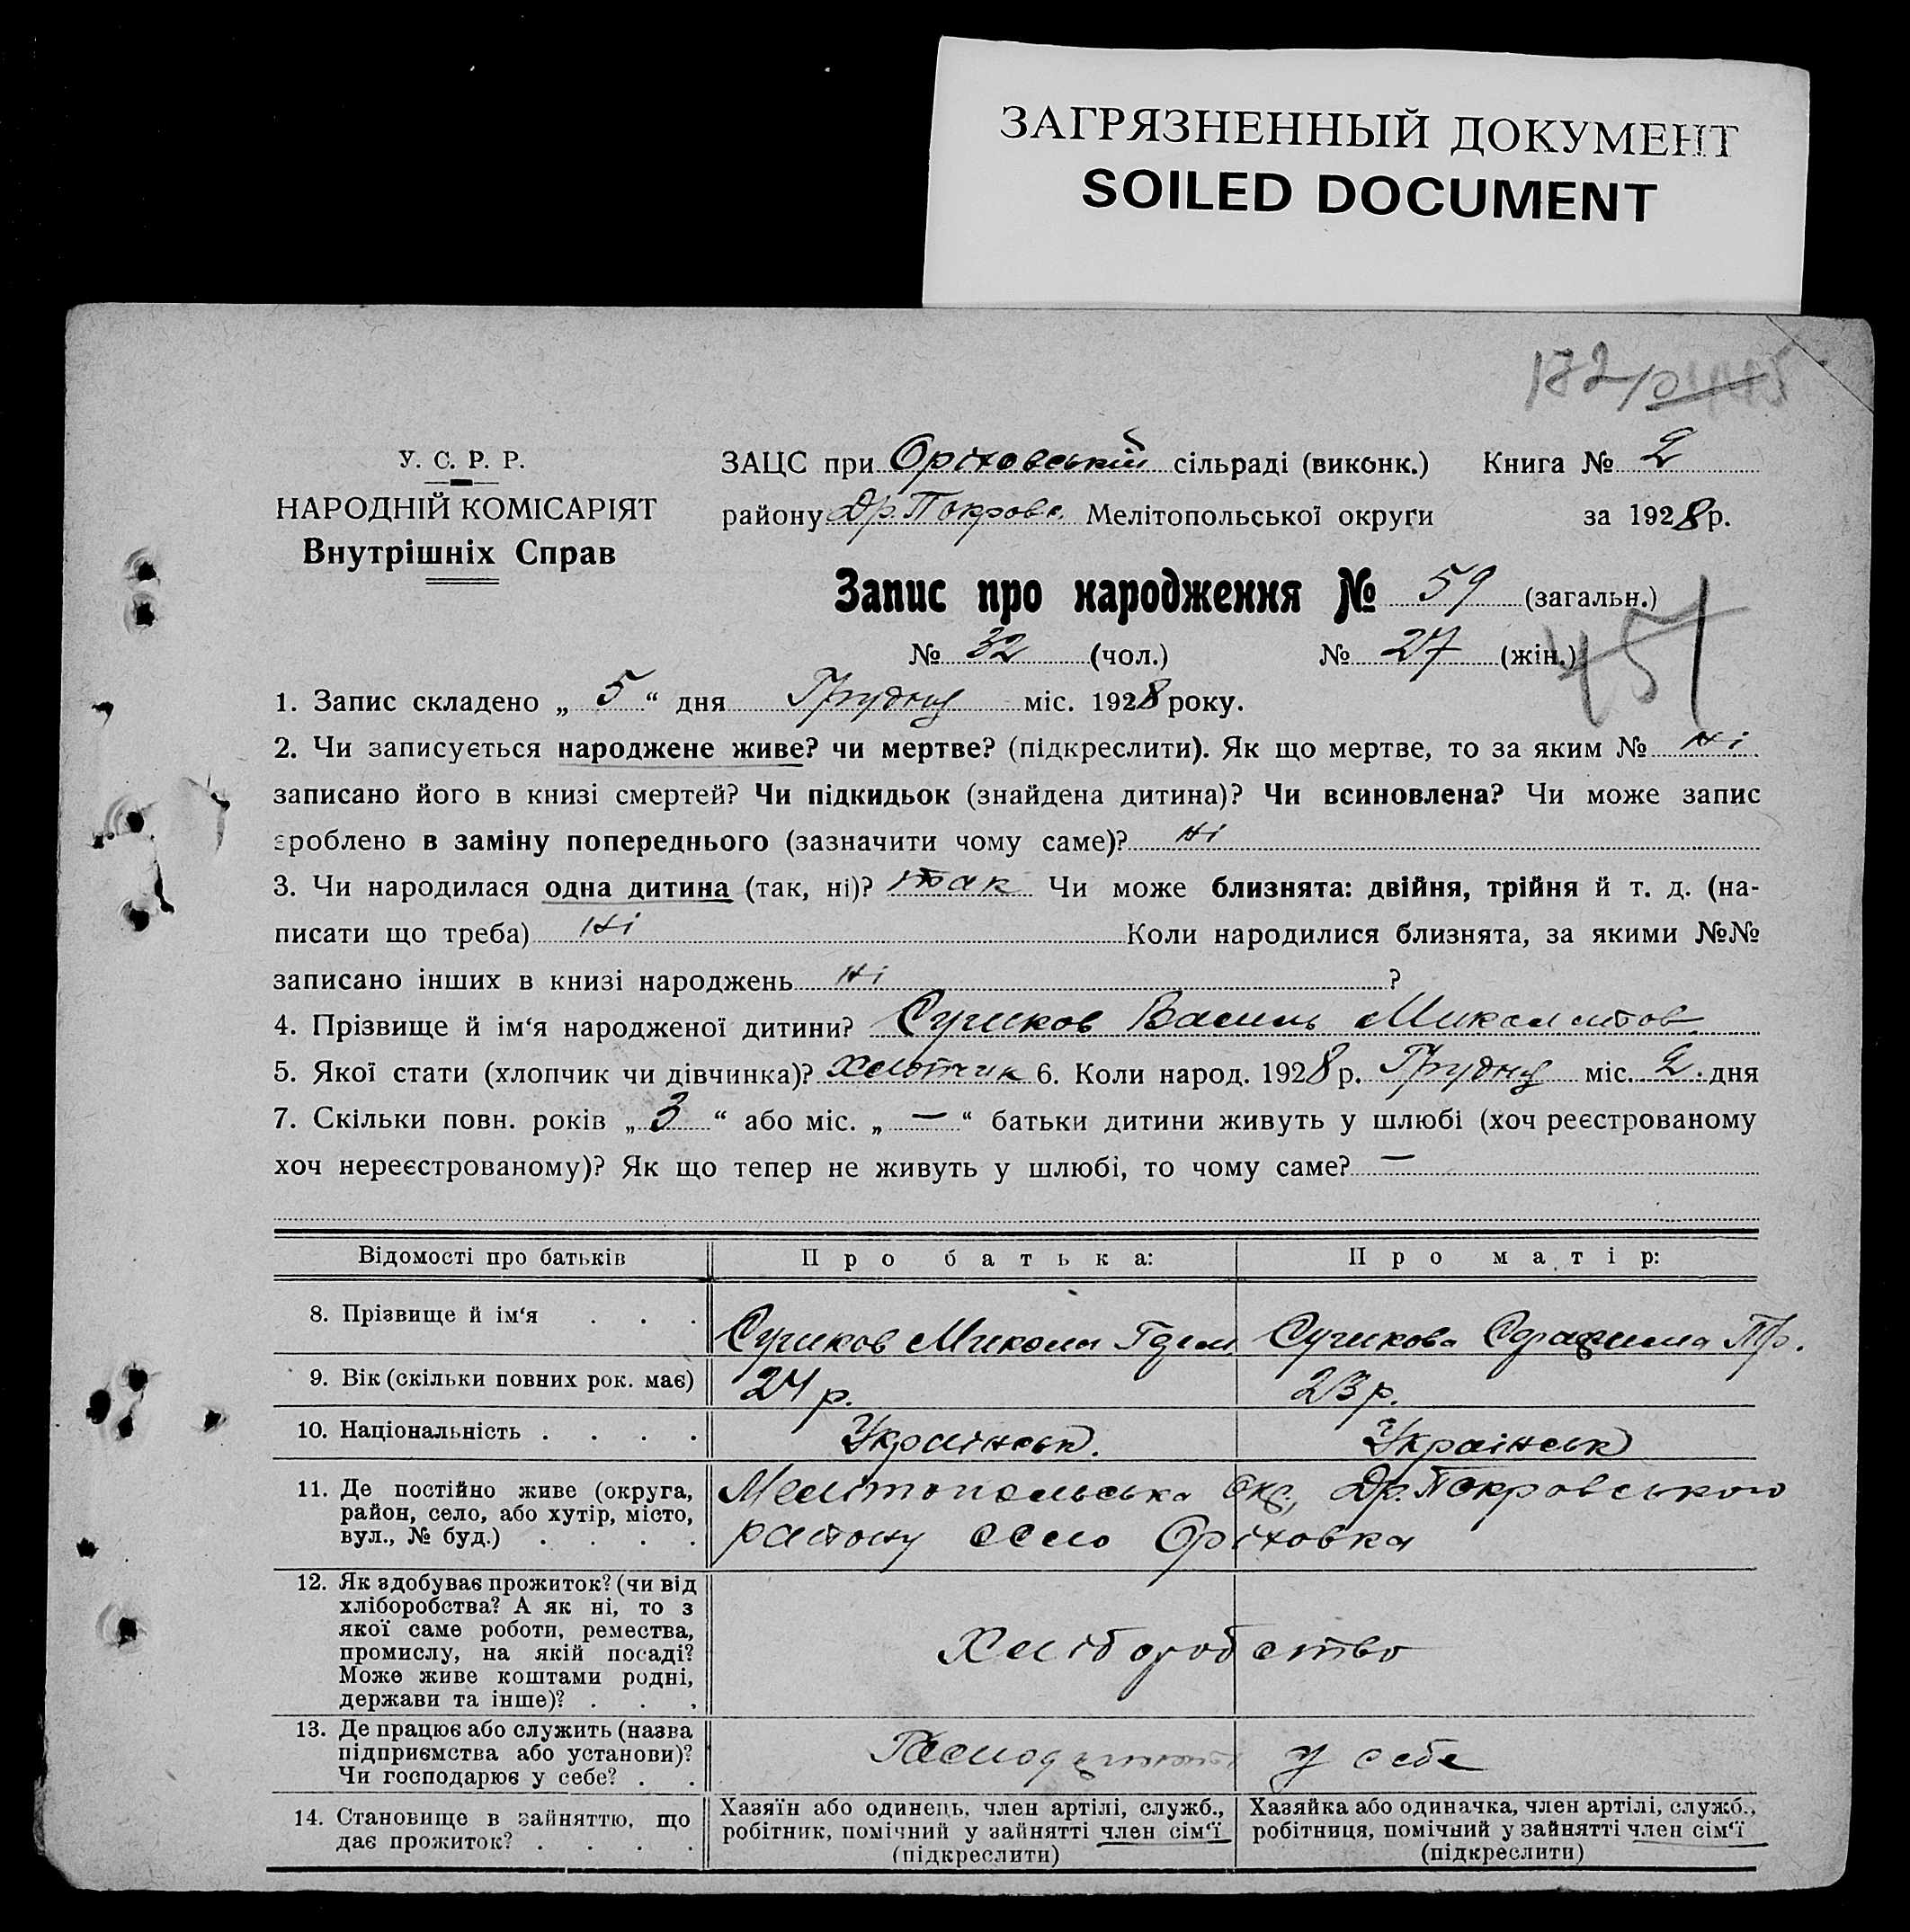 ЗАГРЯЗНЕННЫЙ ДОКУМЕНТ
SOILED DOCUMENT
У. С. Р. Р.
НАРОДНІЙ КОМІСАРІЯТ
Внутрішніх Справ
ЗАЦС при Оріховській сільраді (виконк.) Книга № 2
району Др. Покровс. Мелітопольської округи за 1928 р.
Запис про народження № 59 (загальн.)
№ 32 (чол.) № 27 (жін.)
1. Запис складено „ 5 “ дня Грудня міс. 1928 року.
2. Чи записується народжене живе? чи мертве? (підкреслити). Як що мертве, то за яким № Ні
записано його в книзі смертей? Чи підкидьок (знайдена дитина)? Чи всиновлена? Чи може запис
зроблено в заміну попереднього (зазначити чому саме)? Ні
3. Чи народилася одна дитина (так, ні)? так Чи може близнята: двійня, трійня й т. д. (на-
писати що треба) Ні Коли народилися близнята, за якими №№
записано інших в книзі народжень Ні ?
4. Прізвище й ім‘я народженої дитини? Василь
5. Якої стати (хлопчик чи дівчинка)? Хлопчик 6. Коли народ. 1928 р. Грудня міс. 2. дня
7. Скільки повн. років „ 3 “ або міс. „ — “ батьки дитини живуть у шлюбі (хоч реєстрованому
хоч нереєстрованому)? Як що тепер не живуть у шлюбі, то чому саме? —
Відомості про батьків Про батька: Про матір:
8. Прізвище й ім‘я Микола Пр.
9. Вік (скільки повних рок. має) 24 р. 23 р.
10. Національність Українськ. Українськ
11. Де постійно живе (округа, район, село, або хутір, місто, вул., № буд.)
Мелітопольська окр., Др. Покровського
району село Оріховка
12. Як здобуває прожиток? (чи від
хліборобства? А як ні, то з
якої саме роботи, ремества,
промислу, на якій посаді?
Може живе коштами родні,
держави та інше)?
Хліборобство
13. Де працює або служить (назва
підприємства або установи)?
Чи господарює у себе?
у себе
14. Становище в зайняттю, що
дає прожиток?
Хазяїн або одинець, член артілі, служб.,
робітник, помічний у зайнятті член сім‘ї
(підкреслити)
Хазяйка або одиначка, член артілі, служб.,
робітниця, помічний у зайнятті член сім‘ї
(підкреслити)